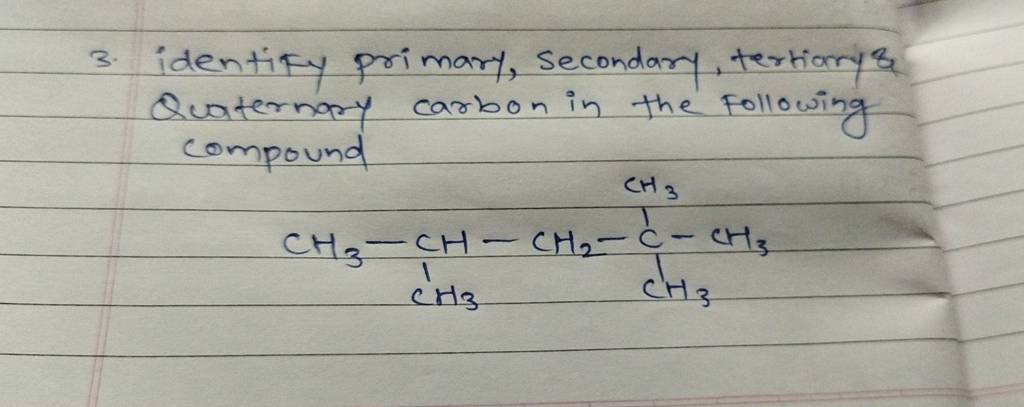 3. identify primary, secondary, tertiary &
Quaternary carbon in the following
compound
CH3
CH3 — CH — CH2 — C — CH3
CH3 CH3